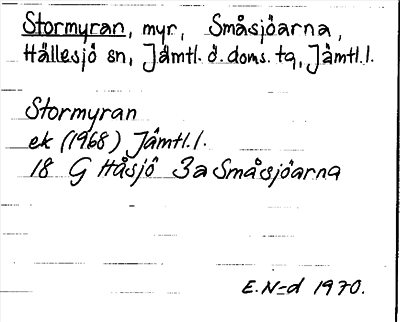 Stormyran, myr, Småsjöarna,
Hällesjö sn, Jämtl. ö. doms. tg, Jämtl.l.
Stormyran
ek (1968) Jämtl.l.
18 G Håsjö 3a Småsjöarna
E.N=d 1970.